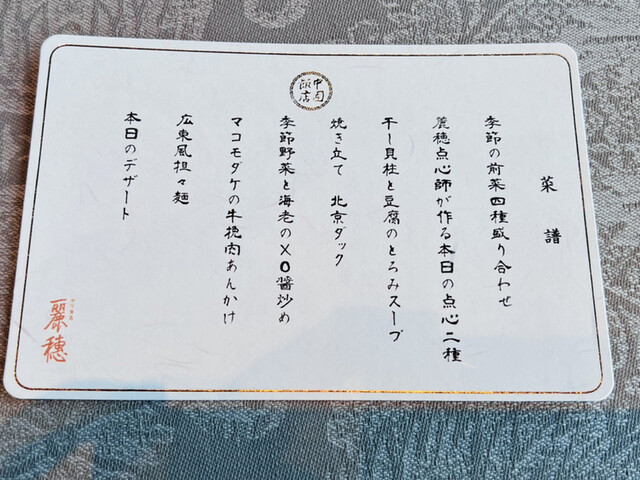 中国飯店
菜譜
季節の前菜四種盛り合わせ
麗穂点心師が作る本日の点心二種
干し貝柱と豆腐のとろみスープ
焼き立て 北京ダック
季節野菜と海老のXO醤炒め
マコモダケの牛挽肉あんかけ
広東風担々麺
本日のデザート
麗穂